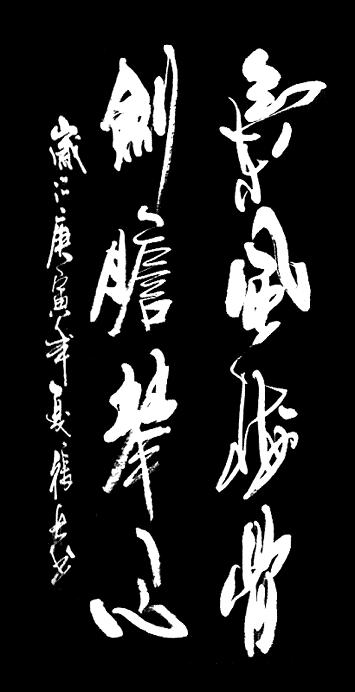 松風梅骨
劍膽琴心
歲次庚寅年夏